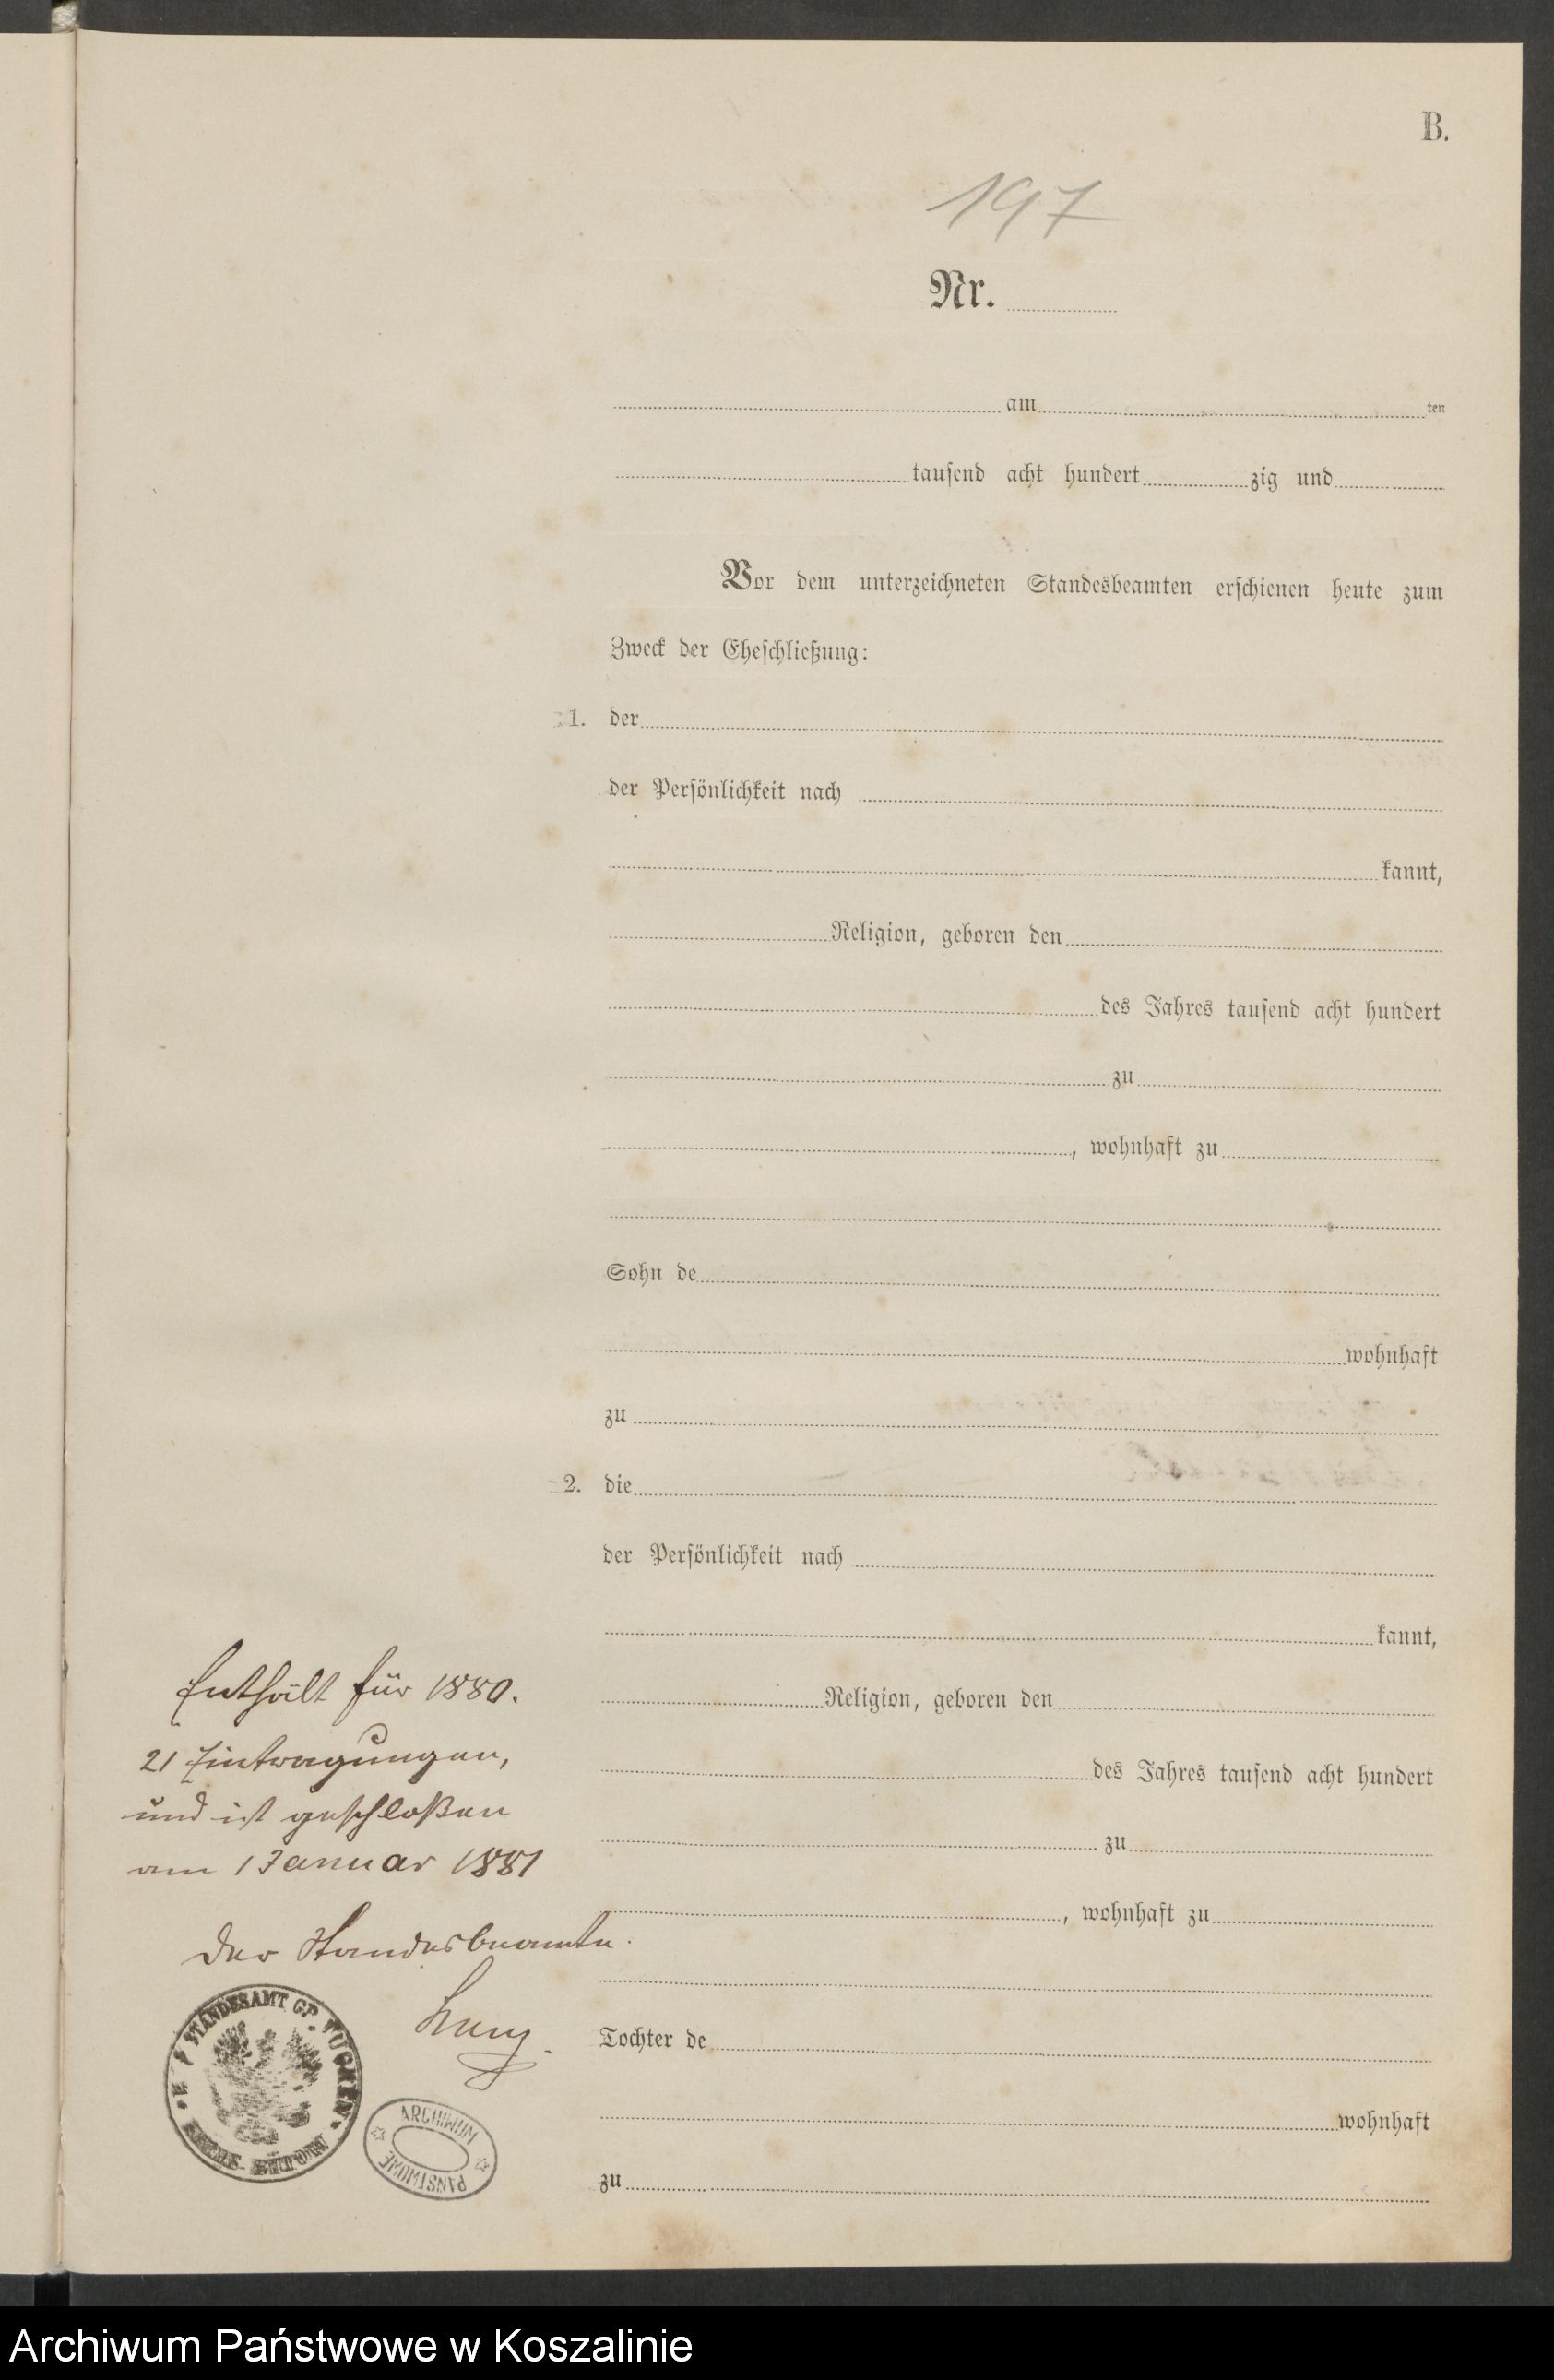 B.
197
Nr.
am ten
tausend acht hundert zig und
Vor dem unterzeichneten Standesbeamten erschienen heute zum
Zweck der Eheschließung:
1. der
der Persönlichkeit nach
kannt,
Religion, geboren den
des Jahres tausend acht hundert
zu
, wohnhaft zu
Sohn de
wohnhaft
zu
2. die
der Persönlichkeit nach
kannt,
Religion, geboren den
des Jahres tausend acht hundert
zu
, wohnhaft zu
Tochter de
wohnhaft
zu
Enthält für 1880.
21 Eintragungen,
und ist geschloßen
am 1 Januar 1881
Der Standesbeamte.
STANDESAMT GR. TUCHEN
BÜTOW
ARCHIWUM
PAŃSTWOWE
Archiwum Państwowe w Koszalinie